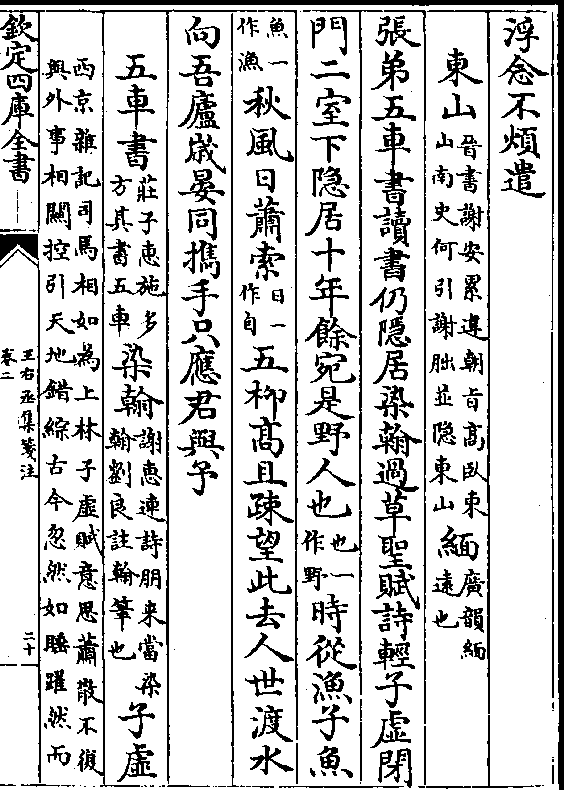 浮念不煩遣
東山晉書謝安累違朝旨高臥東山南史何引謝朏並隐東山緬廣韻緬遠也
張弟五車書讀書仍隠居染翰過草聖賦詩輕子虚閉
門二室下隠居十年餘宛是野人也也一作野時從漁子魚
魚一作漁秋風日蕭索日一作自五柳髙且疎望此去人世渡水
向吾廬歳晏同攜手只應君與予
五車書莊子惠施多方其書五車染翰謝惠連詩朋来當染翰劉良註翰筆也子虚
西京雜記司馬相如為上林子虚賦意思蕭散不復
興外事相關控引天地錯綜古今忽然如睡躍然而
欽定四庫全書
王右丞集箋注
卷二
二十